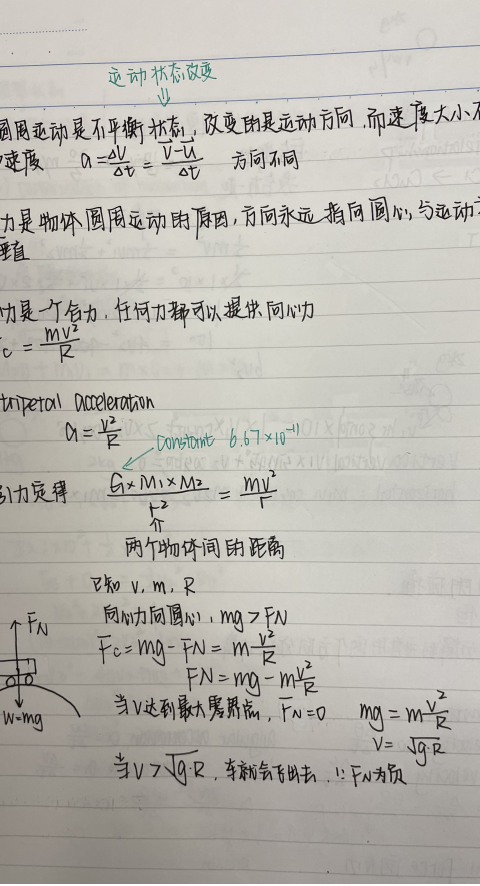 运动状态改变
⇓
圆周运动是不平衡状态, 改变的是运动方向, 而速度大小不
速度 a = ΔV/Δt = (V-U)/Δt 方向不同
力是物体圆周运动的原因, 方向永远指向圆心, 与运动方
垂直
力是一个合力, 任何力都可以提供向心力
c = mv²/R
tripetal acceleration
a = v²/R
constant 6.67×10⁻¹¹
引力定得 G×M1×M2/r² = mv²/r
⇑
两个物体间的距离
已知 v, m, R
向心力向圆心, mg > FN
FN
Fc = mg - FN = m v²/R
FN = mg - m v²/R
W=mg
当V达到最大零界点, FN=0 mg = m v²/R
v = √g·R
当V > √g·R, 车就会飞出去, ∵ FN为负